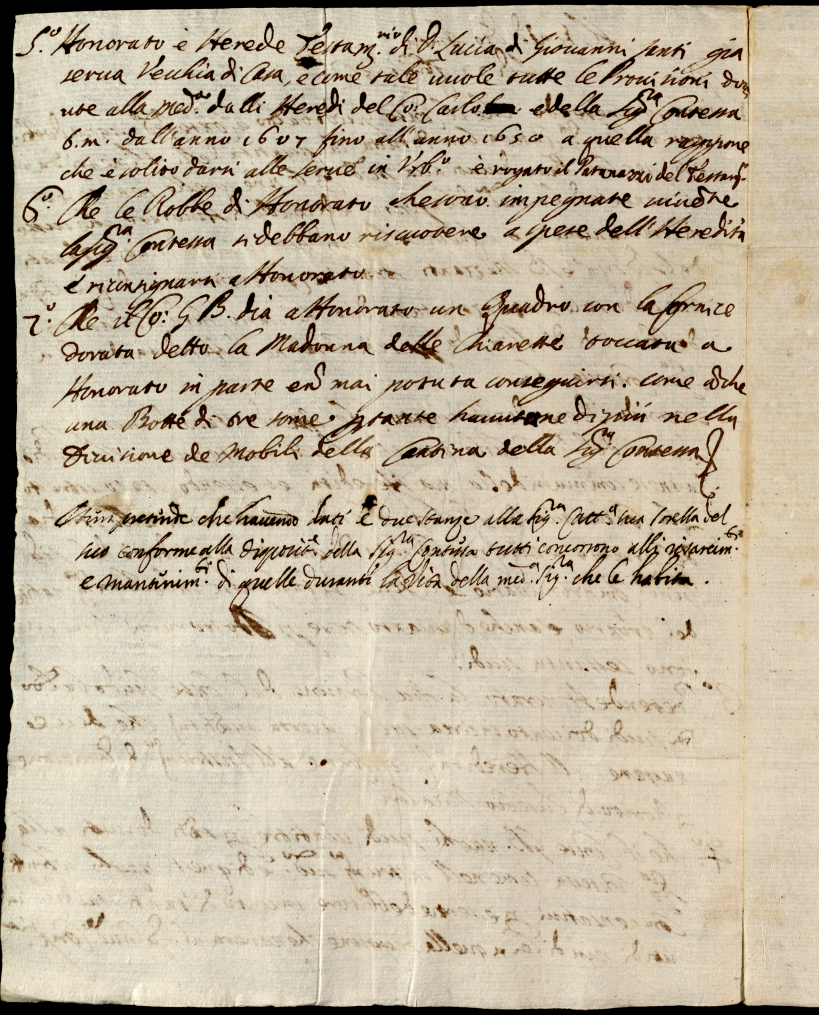 5.o Honorato è Herede Testam.rio di D. Lucia di Giovanni santi gia
serva Vecchia di Casa, e come tale vuole tutte le Provisioni dov
ute alla med.a dalli Heredi del Co: Carlo e della Sig.ra Contessa
b.m. dall'anno 1607 fino all'anno 1650 a quella raggione
che è solito darsi alle serve in Urb.o è rogato il Patanazzi del Testam.
6.o Che le Robbe di Honorato che sono impegnate vivente
la Sig.ra Contessa si debbano riscuotere a spese dell'Heredità
e riconsignarsi a Honorato
7.o Che il Co: G B. dia a Honorato un Quadro con la Cornice
dorata detto la Madonna delle Chiarette toccata a
Honorato in parte e nō mai potuta conseguirsi. come āche
una Botte di tre some stante havutone di più nella
Divisione de Mobili della Cantina della Sig.ra Contessa
pretende che havendo dati le due stanze alla Sig.ra Catt.a sua sorella del
suo conforme alla disposit.e della Sig.ra Contessa tutti concorrono alli risarcim.ti
e mantinim.ti di quelle durante la vita della med.a Sig.ra che le habita.